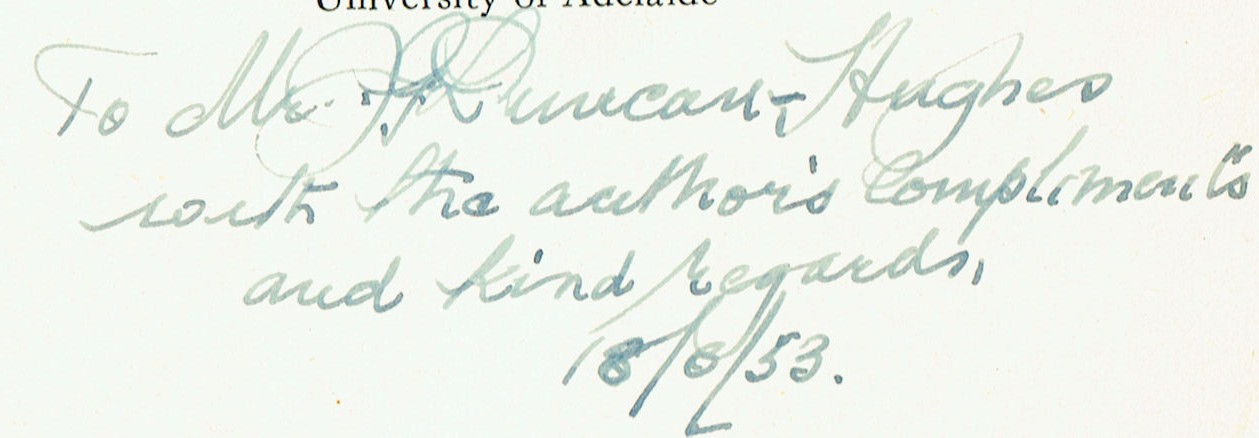 University of Adelaide
To Mr. J. G. Duncan-Hughes
with the author's compliments
and kind regards,
18/8/53.